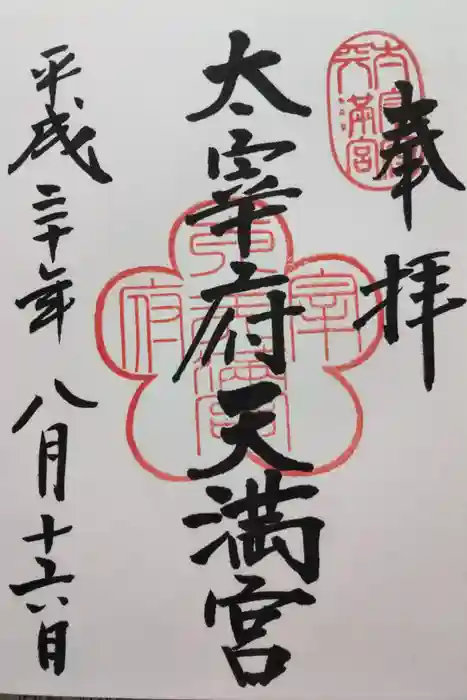 奉拝
太宰府天満宮
太宰府天満宮
平成三十年八月十六日